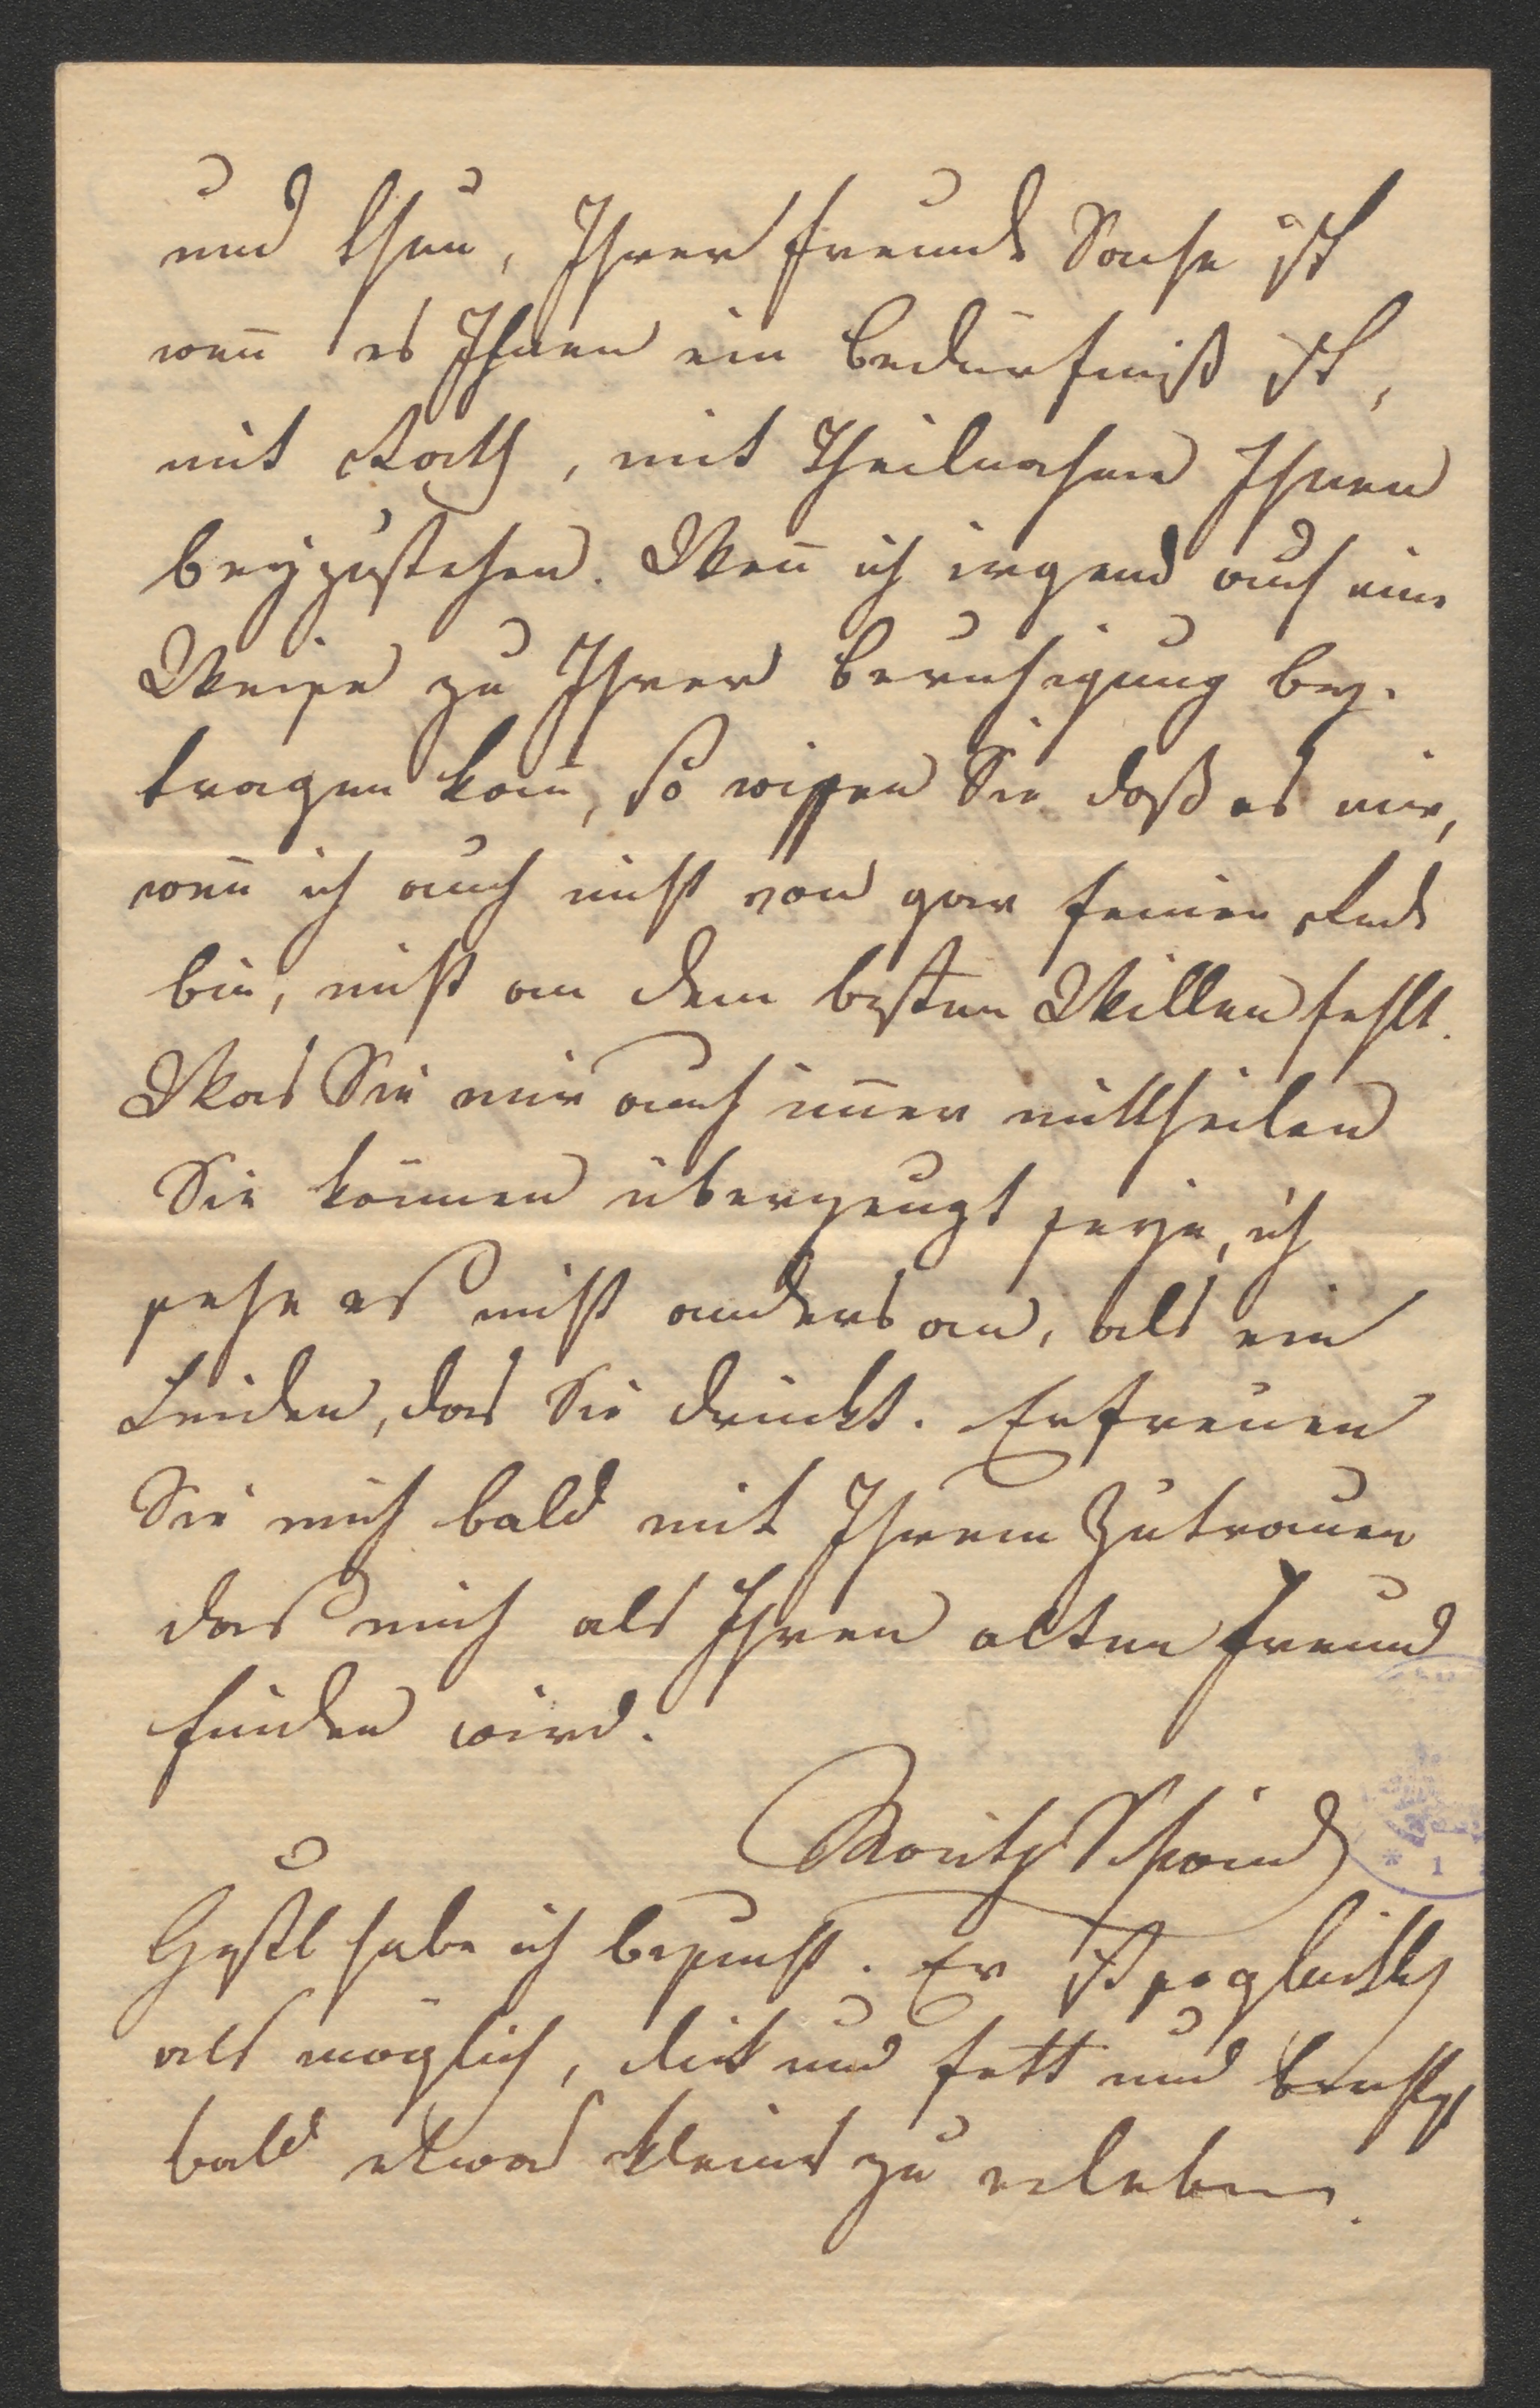 und thun, Ihrer Freunde Sache ist
weñ es Ihnen ein Bedürfniß ist,
mit Rath, mit Theilnahme Ihnen
beyzustehen. Weñ ich irgend auf eine
Weise zu Ihrer Beruhigung bey-
tragen kañ, so wissen Sie daß es mir,
weñ ich auch nicht von gar feiner Rede
bin, nicht an dem besten Willen fehlt.
Was Sie mir auch im̄er mittheilen
Sie können überzeugt seyn, ich
sehe es nicht anders an, als ein
Leiden, das Sie drückt. Erfreuen
Sie mich bald mit Ihrem Zutrauen
das mich als Ihren alten Freund
finden wird.
Moritz Schwind
habe ich besucht. Er ist so glücklich
als möglich, dick und fett und
bald etwas kleines zu erleben.
* 1